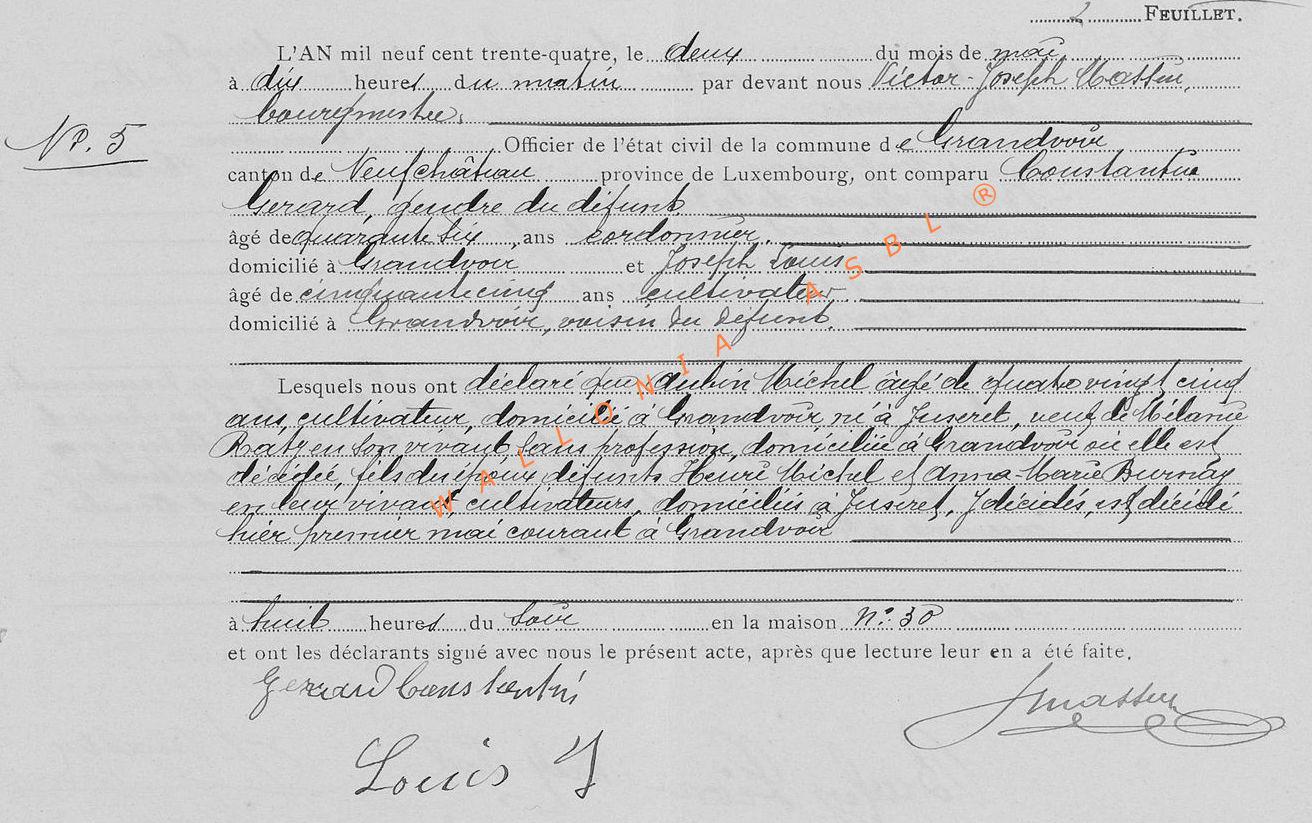 2 FEUILLET.
L'AN mil neuf cent trente-quatre, le deux du mois de mai
à dix heures du matin par devant nous Victor-Joseph Massin,
bourgmestre,
Nº. 5
Officier de l'état civil de la commune de Grandvoir
canton de Neufchâteau province de Luxembourg, ont comparu Constantin
Gerard, gendre du défunt
âgé de quarante six ans cordonnier,
domicilié à Grandvoir et Joseph Louis
âgé de cinquante cinq ans cultivateur
domicilié à Grandvoir, voisin du défunt.
Lesquels nous ont déclaré que Aubin Michel âgé de quatre vingt cinq
ans, cultivateur, domicilié à Grandvoir, né à Juseret, veuf de Mélanie
Ratz en son vivant sans profession, domiciliée à Grandvoir où elle est
décédée, fils des époux défunts Henri Michel et Anna-Marie Burnay
en leur vivant, cultivateurs, domiciliés à Juseret, y décédés, est décédé
hier premier mai courant à Grandvoir
à huit heures du soir en la maison Nº. 30
et ont les déclarants signé avec nous le présent acte, après que lecture leur en a été faite.
Gerard Constantin
JMassin
Louis J
WALLONIA ASBL ®